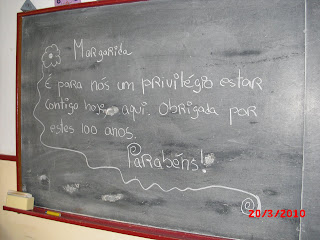 Margarida
É para nós um privilégio estar
contigo hoje aqui. Obrigada por
estes 100 anos.
Parabéns!
20/3/2010